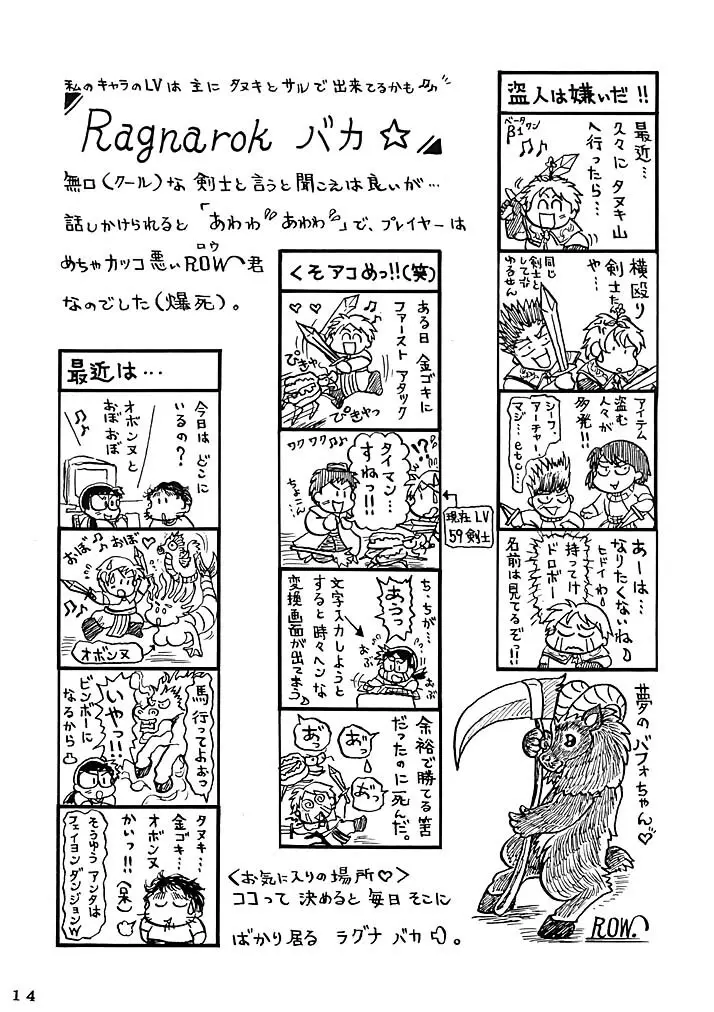 私のキャラのLVは主にタヌキとサルで出来てるかも
Ragnarok バカ☆
無口(クール)な剣士と言うと聞こえは良いが…
話しかけられると「あわわあわわ」で、プレイヤーは
めちゃカッコ悪いROW君
ロウ
なのでした(爆死)。
盗人は嫌いだ!!
ベータワン
β1
最近…
久々にタヌキ山
へ行ったら…
横殴り
剣士た
や…
同じ
剣士と
して
ゆるせん
アイテム
盗む
人々が
多発!!
シーフ、
アーチャー、
マジ…etc…
あーは…
なりたくないね♪
ヒドイわ
持ってけ
ドロボー
名前は見てるぞっ!!
夢のバフォちゃん♡
ROW.
くそアコめっ!!(笑)
ある日 金ゴキに
ファースト アタック
ぴきゃー
ぴきゃっ
ワクワク♪♪
!?
タイマン…
すねっ!!
ちょこん
現在LV
59剣士
ち…ちが…
あうっ
あぶ
あぶ
文字入力しようと
すると時々ヘンな
変換画面が出てまう♪
余裕で勝てる筈
だったのに死んだ。
おっ
おっ
おっ
最近は…
今日はどこに
いるの?
オボンヌと
おぼおぼ
おぼ
おぼ
オボンヌ
馬行ってよぉっ
いやっ!!
ビンボーに
なるから
タヌキ…
金ゴキ…
オボンヌ
かいっ!!(呆)
そうゆうアンタは
フェイヨンダンジョンw
<お気に入りの場所♡>
ココって決めると毎日そこに
ばかり居る ラグナ バカ。
14